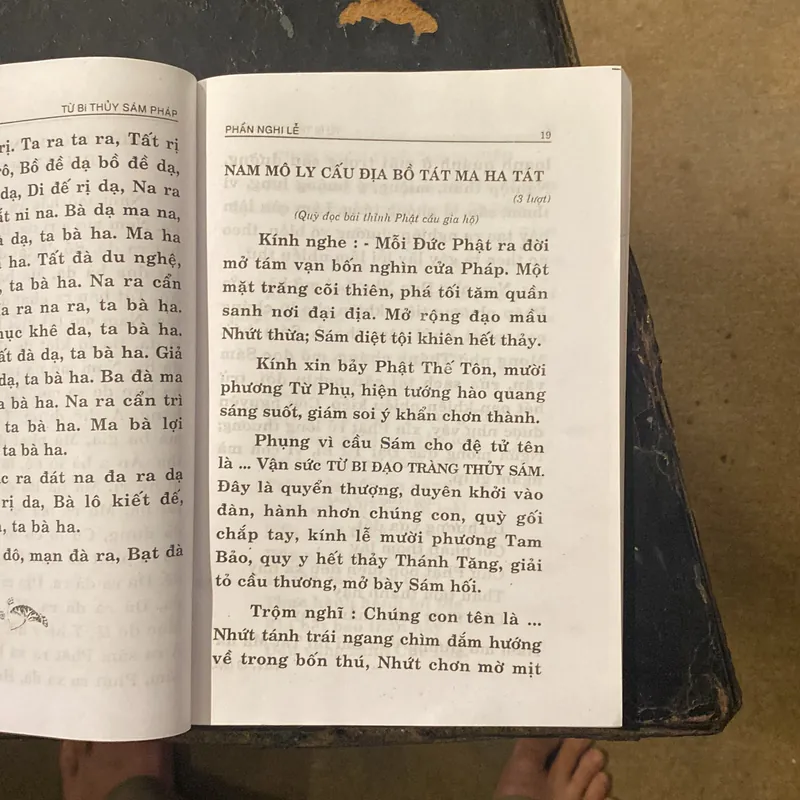 TỪ BI THỦY SÁM PHÁP
rị. Ta ra ta ra, Tất rị
rô, Bồ đề dạ bồ đề dạ,
dạ, Di đế rị dạ, Na ra
ất ni na. Bà dạ ma na,
dạ, ta bà ha. Ma ha
ha. Tất đà du nghệ,
, ta bà ha. Na ra cẩn
a ra na ra, ta bà ha.
mục khê da, ta bà ha.
ất đà dạ, ta bà ha. Giả
dạ, ta bà ha. Ba đà ma
bà ha. Na ra cẩn trì
ta bà ha. Ma bà lợi
ta bà ha.
ra đát na đa ra dạ
rị da, Bà lô kiết đế,
, ta bà ha.
đô, mạn đà ra, Bạt đà
PHẦN NGHI LỄ 19
NAM MÔ LY CẤU ĐỊA BỒ TÁT MA HA TÁT
(3 lượt)
(Quỳ đọc bài thỉnh Phật cầu gia hộ)
Kính nghe : - Mỗi Đức Phật ra đời
mở tám vạn bốn nghìn cửa Pháp. Một
mặt trăng cõi thiên, phá tối tăm quần
sanh nơi đại địa. Mở rộng đạo mầu
Nhứt thừa; Sám diệt tội khiên hết thảy.
Kính xin bảy Phật Thế Tôn, mười
phương Từ Phụ, hiện tướng hào quang
sáng suốt, giám soi ý khẩn chơn thành.
Phụng vì cầu Sám cho đệ tử tên
là ... Vận sức TỪ BI ĐẠO TRÀNG THỦY SÁM.
Đây là quyển thượng, duyên khởi vào
đàn, hành nhơn chúng con, quỳ gối
chắp tay, kính lễ mười phương Tam
Bảo, quy y hết thảy Thánh Tăng, giải
tỏ cầu thương, mở bày Sám hối.
Trộm nghĩ : Chúng con tên là ...
Nhứt tánh trái ngang chìm đắm hướng
về trong bốn thú, Nhứt chơn mờ mịt